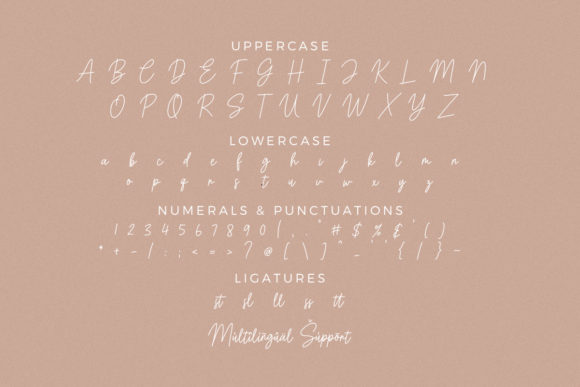 UPPERCASE
A B C D E F G H I J K L M N
O P Q R S T U V W X Y Z
LOWERCASE
a b c d e f g h i j k l m n
o p q r s t u v w x y z
NUMERALS & PUNCTUATIONS
1 2 3 4 5 6 7 8 9 0 ( , . " # $ % & ' ( )
* + - / : ; < = > ? @ [ \ ] ^ _ ` ' { / } ~
LIGATURES
st sl ll ss tt
Mùltílíngüäl Šüppört